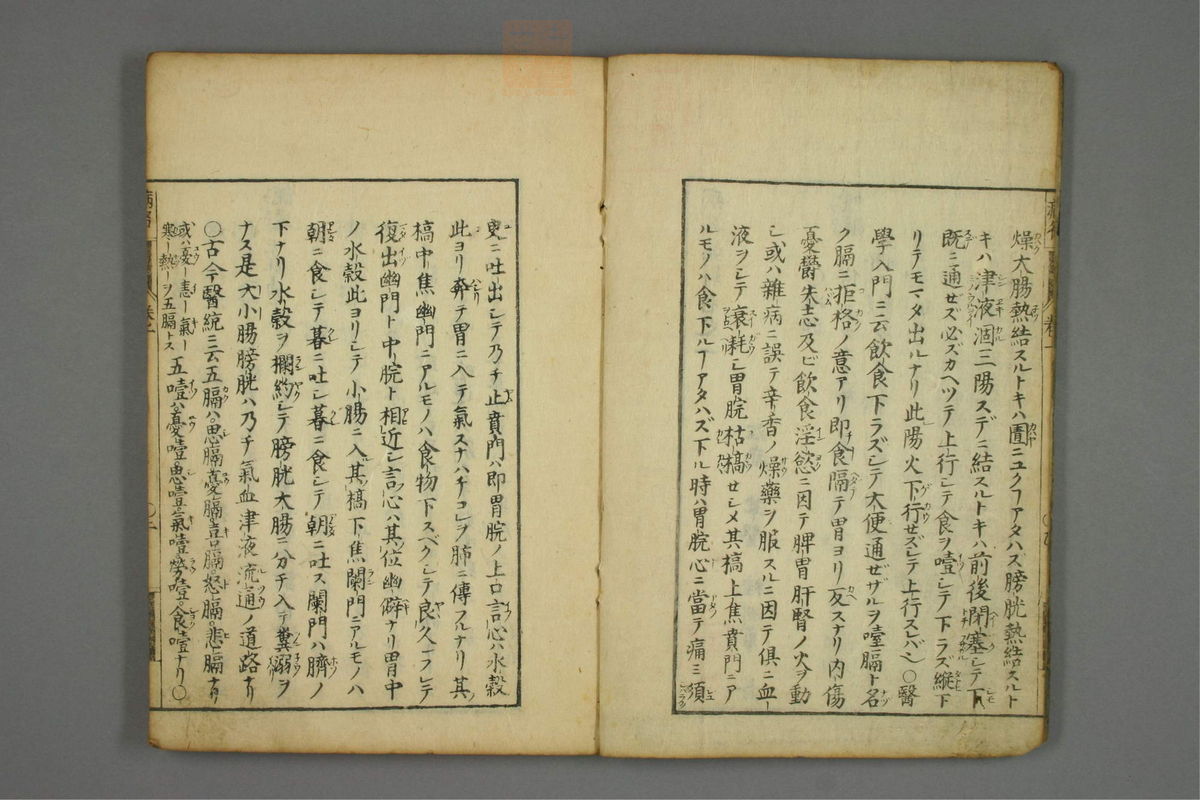 燥大腸熱結スルトキハ圊ニユクコアタハズ膀胱熱結スルト
キハ津液涸三陽スデニ結スルトキハ前後閉塞シテ下
既ニ通ゼズ必ズカヘツテ上行シテ食ヲ噎シテ下ラズ縱下
リテモマタ出ルナリ此陽火下行せズシテ上行スレバ也〇醫
學入門ニ云飲食下ラズシテ大便通ぜザルヲ噎膈ト名
ク膈ニ拒格ノ意アリ即食隔テ胃ヨリ反スナリ内傷
憂鬱失志及ビ飲食淫慾ニ因テ脾胃肝腎ノ火ヲ動
シ或ハ雜病ニ誤テ辛香ノ燥藥ヲ服スルニ因テ俱ニ血
液ヲシテ衰耗シ胃脘枯槁せシメ其槁上焦賁門ニア
ルモノハ食下ルコアタハズ下ル時ハ胃脘心ニ當テ痛ミ須
臾ニ吐出シテ乃チ止賁門ハ即胃脘ノ上口言心ハ水穀
此ヨリ奔テ胃ニ入テ氣スナハチコレヲ肺ニ傳フルナリ其
槁中焦幽門ニアルモノハ食物下スベクシテ良久フシテ
復出幽門ト中脘ト相近シ言心ハ其位幽僻ナリ胃中
ノ水穀此ヨリシテ小腸ニ入其槁下焦闌門ニアルモノハ
朝ニ食シテ暮ニ吐シ暮ニ食シテ朝ニ吐ス闌門ハ臍ノ
下ナリ水穀ヲ欄約シテ膀胱大腸ニ分チ入テ糞溺ヲ
ナス是大小腸膀胱ハ乃チ氣血津液流通ノ道路ナリ
〇古今醫統ニ云五膈ハ思膈憂膈喜膈怒膈悲膈ナリ
或ハ憂ー恚ー氣ー
寒ー熱ーヲ五膈トス
五噎ハ憂噎思噎氣噎勞噎食噎ナリ〇